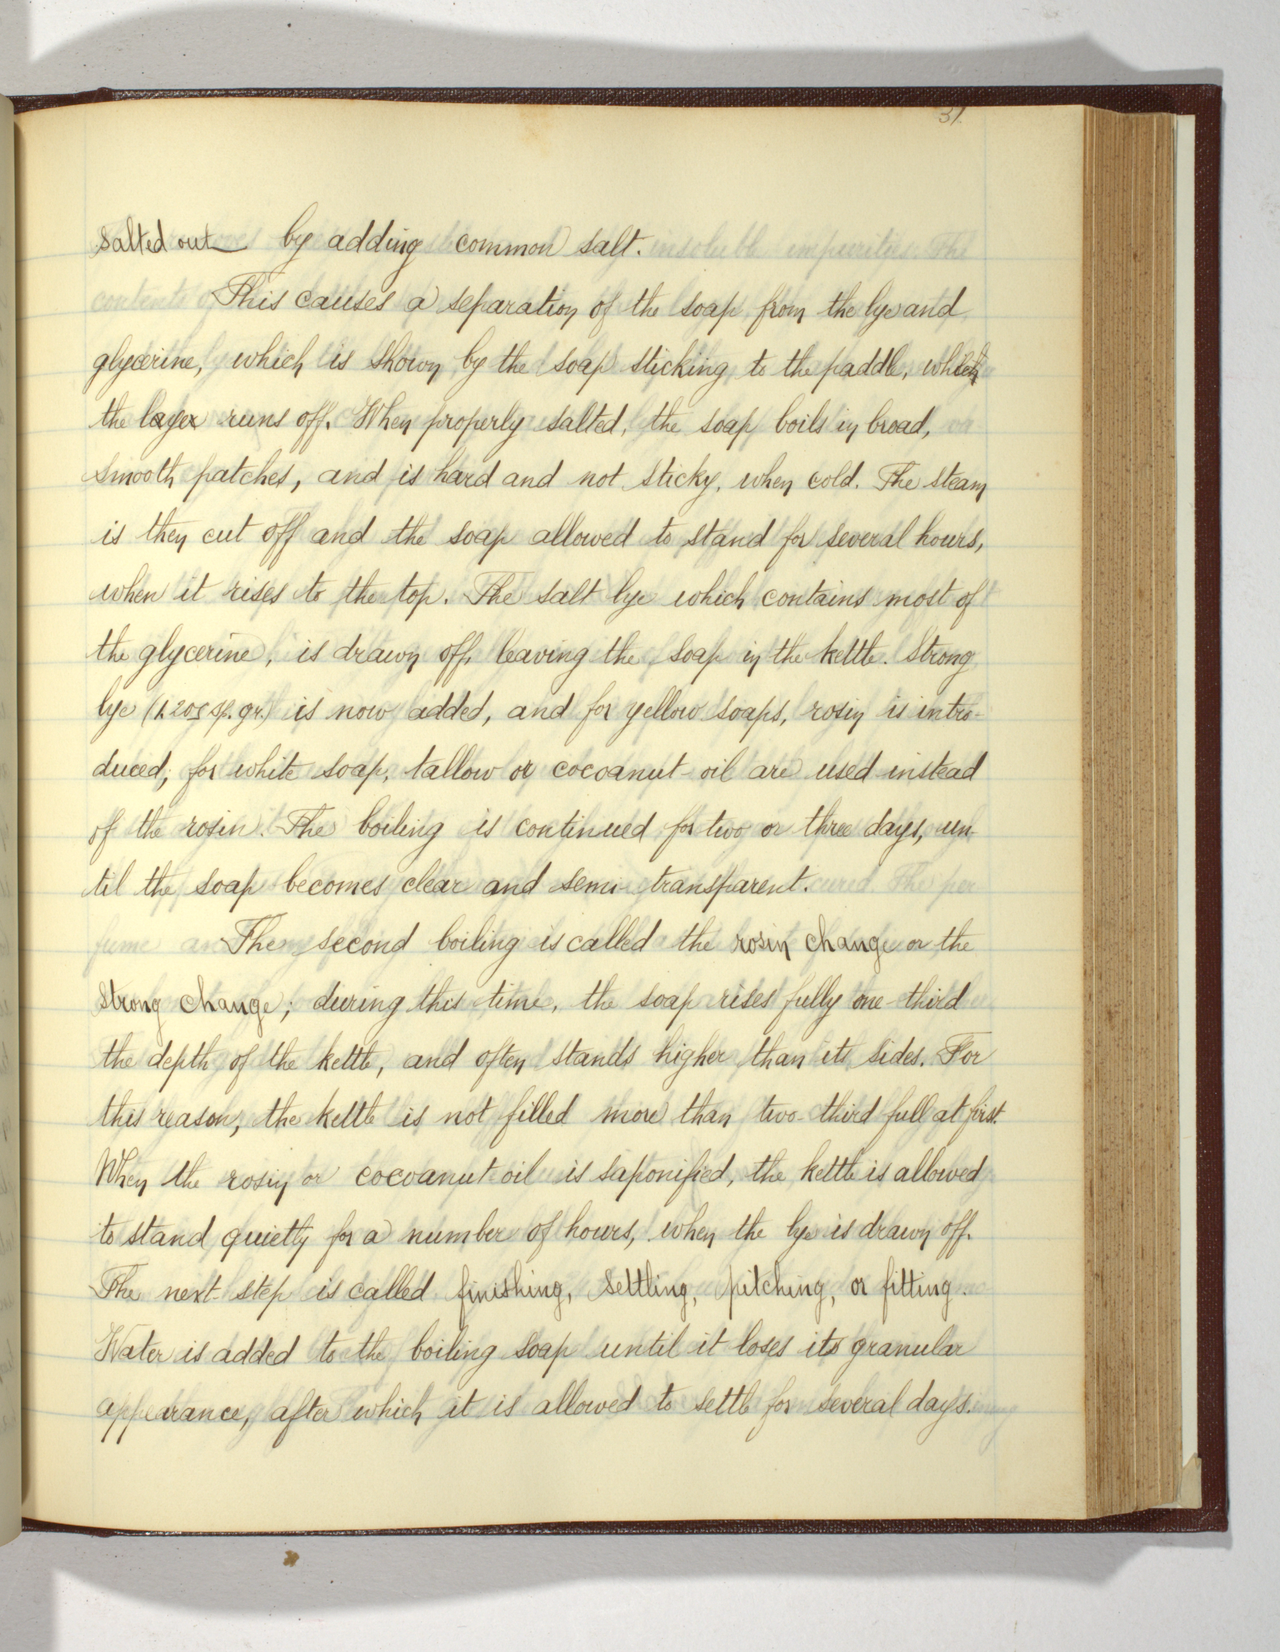 31.
Salted out by adding common salt.
This causes a separation of the soap from the lye and
glycerine, which is shown by the soap sticking to the paddle, which
the layer runs off. When properly salted, the soap boils in broad,
smooth patches, and is hard and not sticky, when cold. The steam
is then cut off and the soap allowed to stand for several hours,
when it rises to the top. The salt lye which contains most of
the glycerine, is drawn off, leaving the soap in the kettle. Strong
lye (1.205 sp. gr.) is now added, and for yellow soaps, rosin is intro-
duced; for white soap, tallow or cocoanut-oil are used instead
of the rosin. The boiling is continued for two or three days, un-
til the soap becomes clear and semi-transparent.
The second boiling is called the rosin change or the
strong change; during this time, the soap rises fully one-third
the depth of the kettle, and often stands higher than its sides. For
this reason, the kettle is not filled more than two-third full at first.
When the rosin or cocoanut oil is saponified, the kettle is allowed
to stand quietly for a number of hours, when the lye is drawn off.
The next step is called finishing, settling, pitching, or fitting.
Water is added to the boiling soap until it loses its granular
appearance, after which it is allowed to settle for several days.